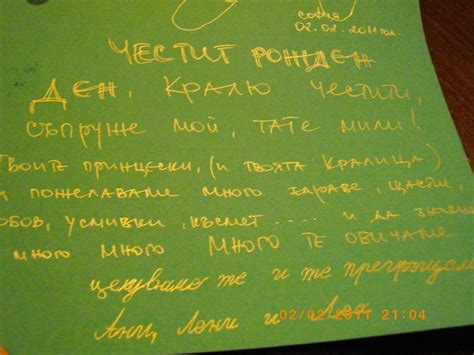 София
02.02.2011 год.
ЧЕСТИТ РОЖДЕН
ДЕН, КРАЛЮ ЧЕСТИТИ,
СЪПРУЖЕ МОЙ, ТАТЕ МИЛИ!
ТВОИТЕ ПРИНЦЕСКИ, (И ТВОЯТА КРАЛИЦА)
ПОЖЕЛАВАМЕ МНОГО ЗДРАВЕ, ЩАСТИЕ,
УСМИВКИ, КЪСМЕТ .... И ДА ЗНАЕШ
МНОГО МНОГО МНОГО ТЕ ОБИЧАМЕ
целуваме те и те прегръщаме
Ани, Лени и
02/02/2011 21:04